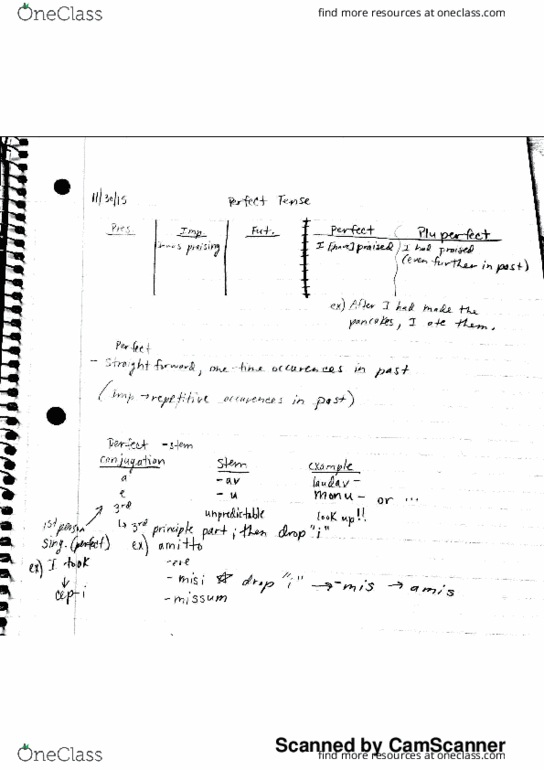 OneClass
find more resources at oneclass.com
11/30/15
Perfect Tense
Pres. Imp. Fut. Perfect Pluperfect
I was praising I [have] praised I had praised
(even further in past)
ex) After I had made the
pancakes, I ate them.
Perfect
- Straight forward, one-time occurences in past
(Imp → repetitive occurences in past)
Perfect - stem
Conjugation Stem example
a -av laudav-
e -u monu- or ...
3rd unpredictable look up!!
↳ 3rd principle part; then drop "i"
1st person
Sing. (perfect)
ex) I took
↓
cep-i
ex) amitto
-ere
-misi ☆ drop "i" → -mis → amis
-missum
Scanned by CamScanner
OneClass
find more resources at oneclass.com